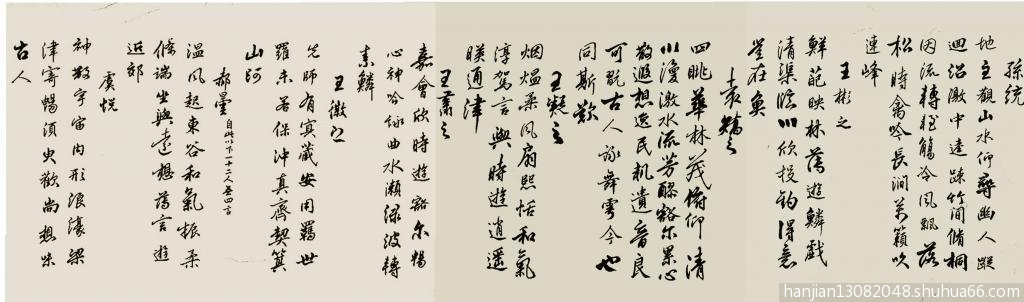 孫統
地主觀山水仰尋幽人蹤
迴沼激中逵踈竹間脩桐
因流轉輕觴冷風飄落
松時禽吟長澗万籟吹
連峰
王彬之
鮮葩映林薄遊鱗戲
清渠臨川欣投釣得意
豈在魚
袁嶠之
四眺華林茂俯仰清
川渙激水流芳醪豁尔累心
散遐想逸民軌遺音良
可翫古人詠舞雩今也
同斯歎
王凝之
烟熅柔風扇熙恬和氣
淳駕言與時遊逍遥
暎通津
王肅之
嘉會欣時遊豁尔暢
心神吟詠曲水瀨渌波轉
素鱗
王徽之
先師有冥藏安用羈世
羅未若保沖真齊契箕
山阿
郗曇 自此以下十二人四言
温風起東谷和氣振柔
條端坐興遠想薄言遊
近郊
虞悅
神散宇宙内形浪濠梁
津寄暢須臾歡尚想味
古人
hanjian13082048.shuhua66.com